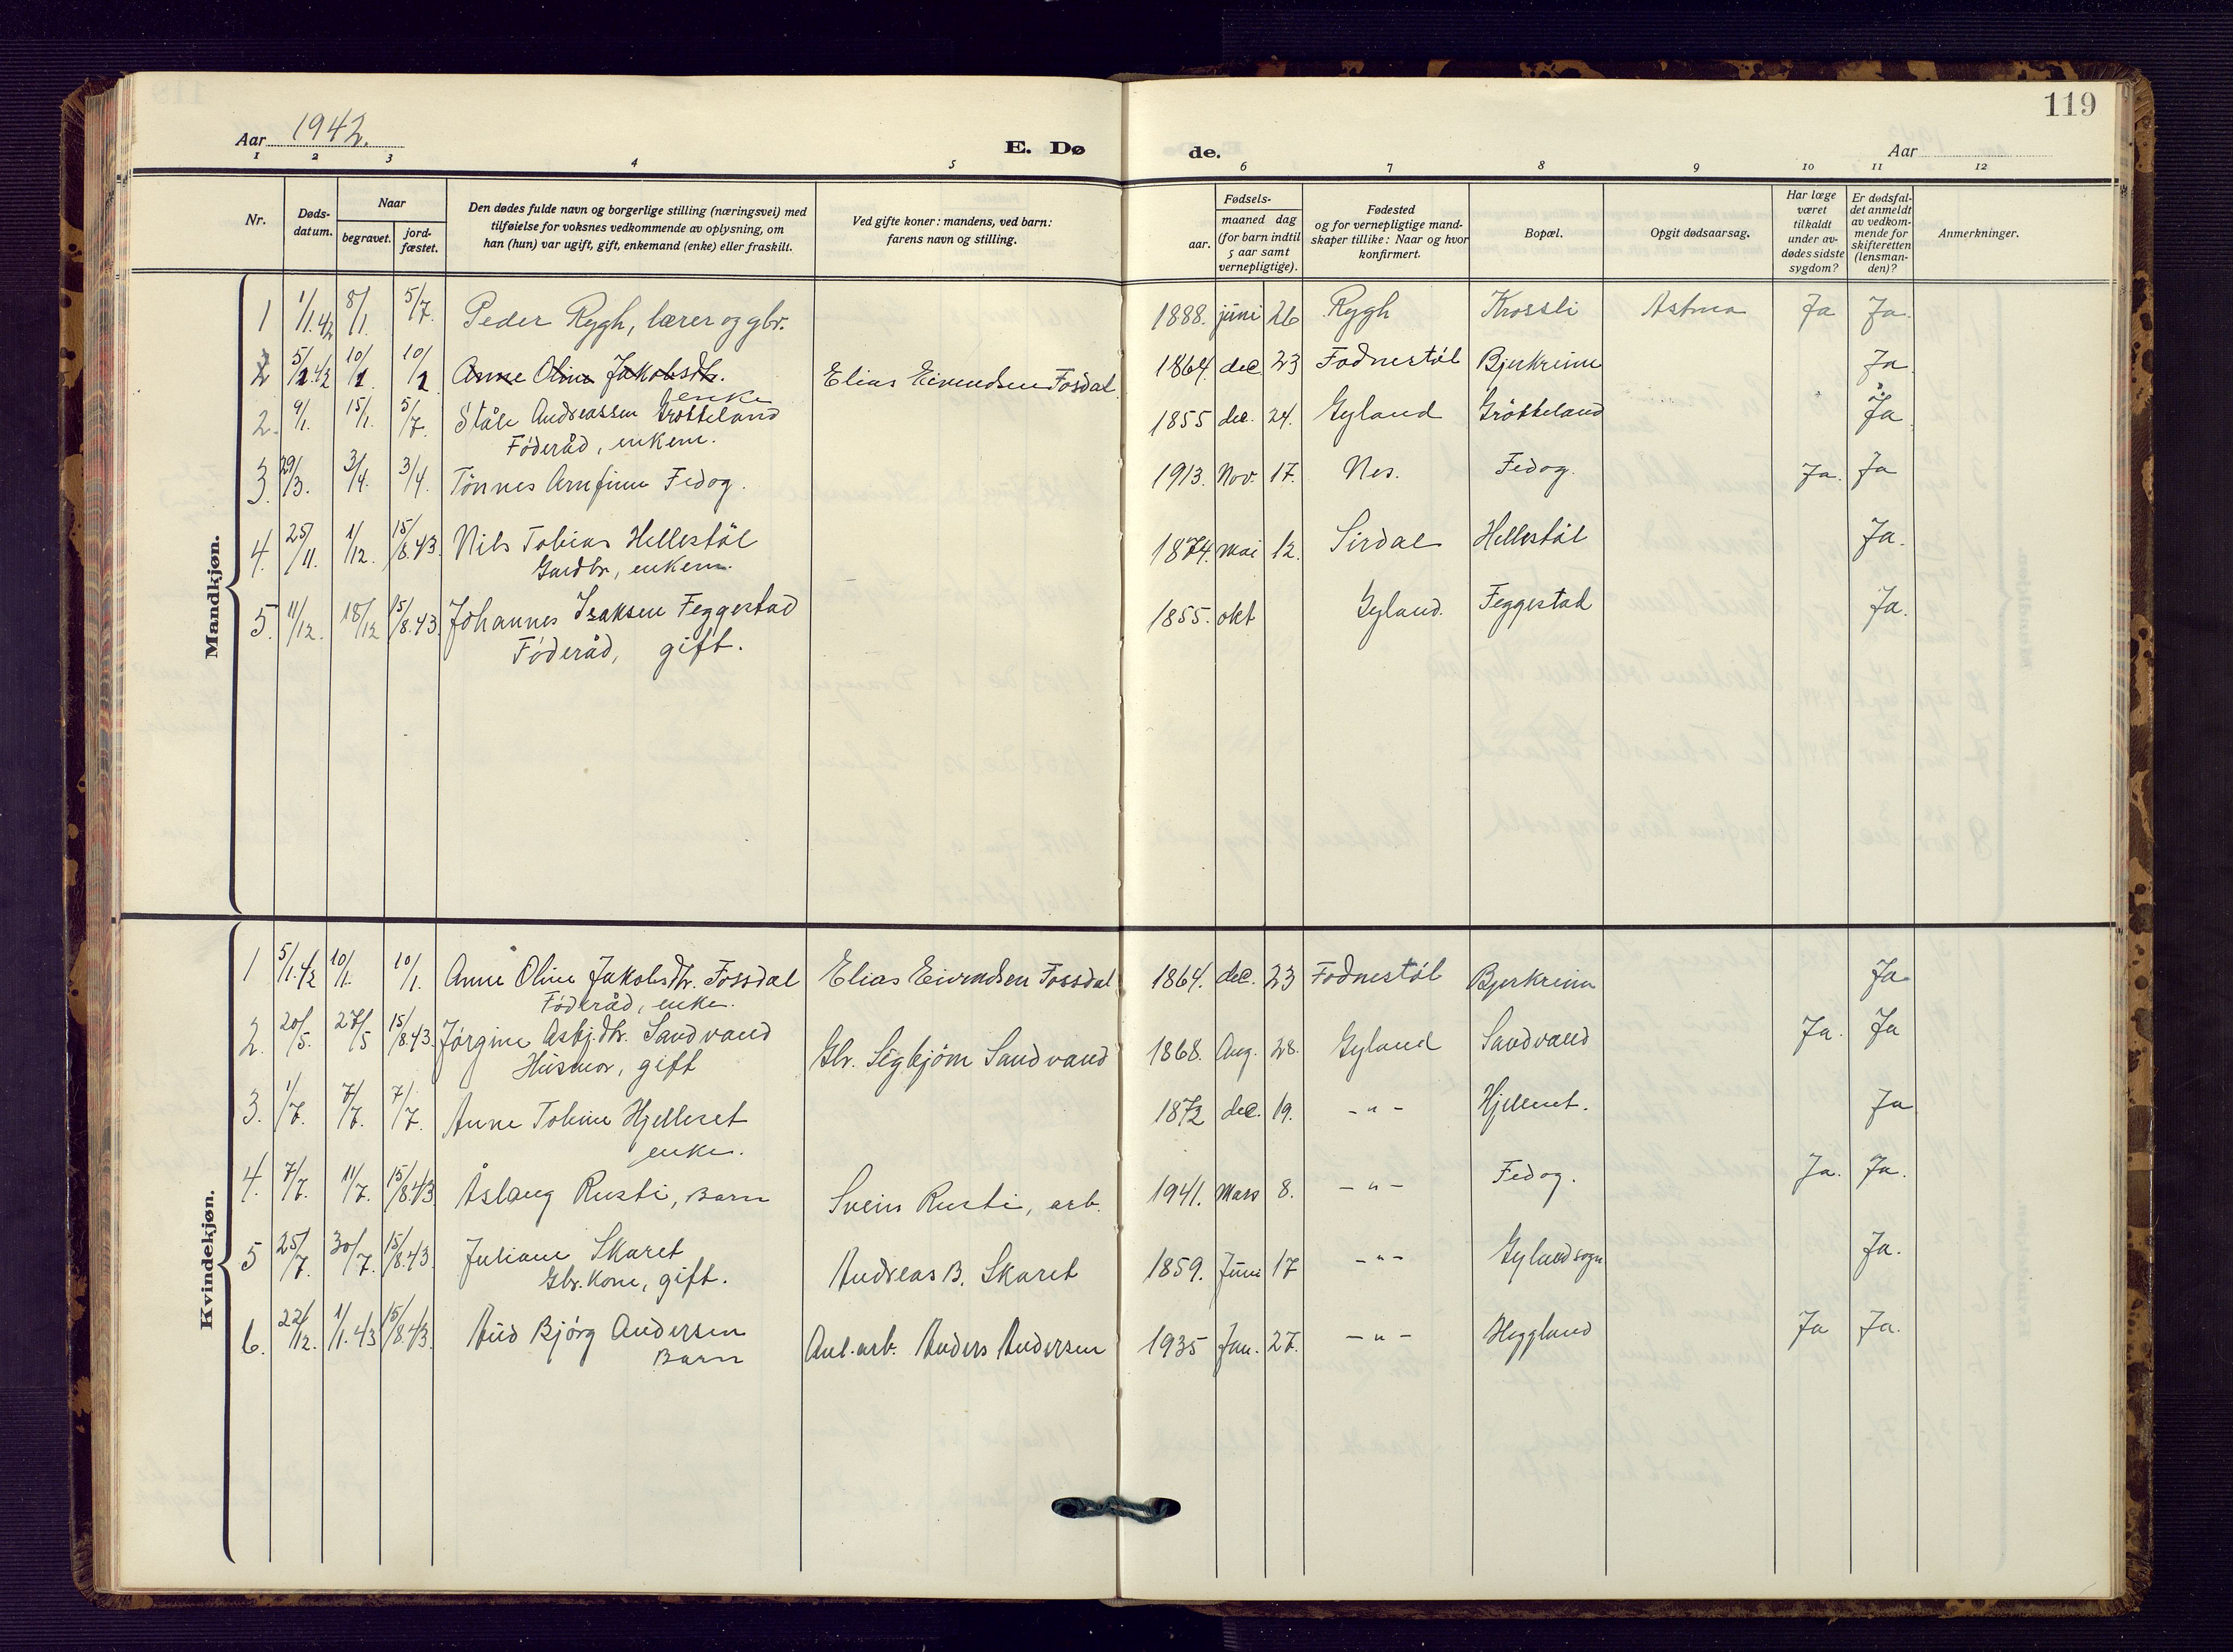 119
Aar 1942.
E. Dø de.
Aar
1 2 3 4 5 6 7 8 9 10 11 12
Nr.
Døds-
datum.
Naar
begravet.
jord-
fæstet.
Den dødes fulde navn og borgerlige stilling (næringsvei) med
tilføielse for voksnes vedkommende av oplysning, om
han (hun) var ugift, gift, enkemand (enke) eller fraskilt.
Ved gifte koner: mandens, ved barn:
farens navn og stilling.
Fødsels-
aar.
maaned dag
(for barn indtil
5 aar samt
vernepligtige).
Fødested
og for vernepligtige mand-
skaper tillike: Naar og hvor
konfirmert.
Bopæl.
Opgit dødsaarsag.
Har læge
været
tilkaldt
under av-
dødes sidste
sygdom?
Er dødsfal-
det anmeldt
av vedkom-
mende for
skifteretten
(lensman-
den)?
Anmerkninger.
Mandkjøn.
1 1/1.42 8/1. 5/7. Peder Rygh, lærer og gbr. 1888. juni 26 Rygh Krossli Astma Ja Ja.
2 5/1.42 10/1. 10/1 Anne Oline Jakobsdtr. Elias Eivendsen Fosdal 1864. dec. 23 Fodnestøl Bjerkreim Ja
enke
2. 9/1. 15/1. 5/7. Ståle Andreassen Grøtteland 1855 dec. 24. Gyland Grøtteland Ja
Føderåd, enkem.
3. 29/3. 3/4. 3/4. Tønnes Arnfinn Fedog. 1913. Nov. 17. Nes. Fedog. Ja. Ja
4. 25/11. 1/12. 15/8.43. Nils Tobias Hellestøl 1874. mai 12. Sirdal Hellestøl Ja.
Gardbr, enkem.
5. 11/12. 18/12 15/8.43. Johannes Isaksen Feggestad 1855. okt Gyland. Feggestad Ja.
Føderåd, gift.
Kvindekjøn.
1 5/1.42 10/1. 10/1. Anne Oline Jakobsdtr. Fossdal Elias Eivendsen Fossdal 1864. dec. 23 Fodnestøl Bjerkreim Ja
Føderåd, enke.
2. 20/5. 27/5 15/8.43. Jørgine Asbj.dtr. Sandvand Gbr. Sigbjørn Sandvand 1868. Aug. 28. Gyland Sandvand Ja. Ja
Husmor, gift
3. 1/7. 7/7. 7/7. Anne Tobine Hjelleset 1872 dec. 19. -"- Hjelleset. Ja
enke.
4. 7/7. 11/7. 15/8.43 Åslaug Rusti, Barn Svein Rusti, arb. 1941. Mars 8. -"- Fedog. Ja. Ja.
5 25/7. 30/7. 15/8.43 Juliane Skaret Andreas B. Skaret 1859. Juni 17 -"- Gylandsogn Ja.
Gbr. Kone, gift.
6. 22/12. 1/1.43 15/8.43. Aud Bjørg Andersen Anl.arb. Anders Andersen 1935 Jan. 27. -"- Heggland Ja Ja.
Barn